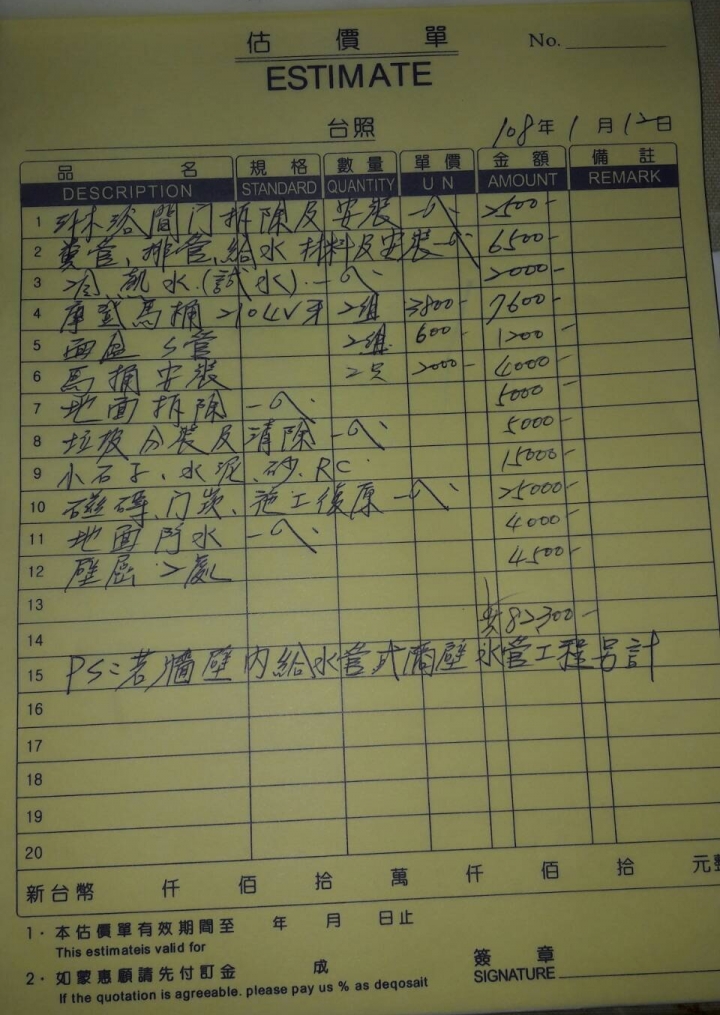 估價單 No.
ESTIMATE
台照 108年1月12日
品名 規格 數量 單價 金額 備註
DESCRIPTION STANDARD QUANTITY U N AMOUNT REMARK
1 浴間门拆除及安裝一式 2500-
2 糞管、排管、給水材料及安裝一式 6500-
3 冷、熱水(試水)一式 2000-
4 摩登馬桶 2組 3800- 7600-
5 面盆S管 2組 600- 1200-
6 馬桶安裝 2只 2000- 4000-
7 地面拆除 一式 5000
8 垃圾分裝及清除 一式 5000-
9 小石子、水泥、砂、RC 15000-
10 磁磚、门崁、施工復原 一式 25000-
11 地面防水 一式 4000-
12 壁癌2處 4500-
13
14 共82300-
15 PS:若牆壁內給水管或隔壁水管工程另計
16
17
18
19
20
新台幣 仟 佰 拾 萬 仟 佰 拾 元整
1．本估價單有效期間至 年 月 日止
This estimateis valid for
2．如蒙惠顧請先付訂金 成 簽章
If the quotation is agreeable. please pay us % as deqosait SIGNATURE